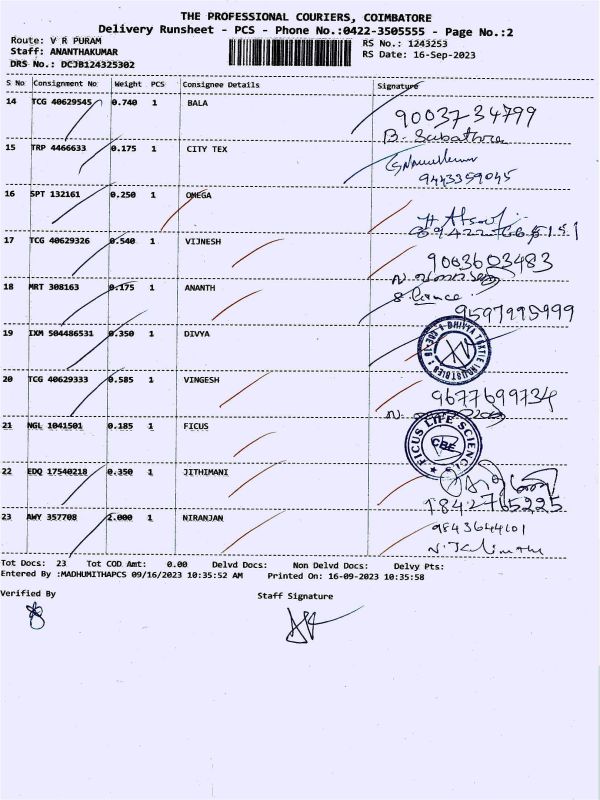 THE PROFESSIONAL COURIERS, COIMBATORE
Delivery Runsheet - PCS - Phone No.:0422-3505555 - Page No.:2
Route: V R PURAM
RS No.: 1243253
Staff: ANANTHAKUMAR
RS Date: 16-Sep-2023
DRS No.: DCJB124325302
S No Consignment No Weight PCS Consignee Details Signature
14 TCG 40629545 0.740 1 BALA
9003734799
B.
15 TRP 4466633 0.175 1 CITY TEX
9443359045
16 SPT 132161 0.250 1 OMEGA
17 TCG 40629326 0.540 1 VIJNESH
9003603483
18 MRT 308163 0.175 1 ANANTH
9597995999
19 IXM 504486531 0.350 1 DIVYA
DHIVYA TEXTILE INDUSTRIES
20 TCG 40629333 0.585 1 VINGESH
9677699734
21 NGL 1041501 0.185 1 FICUS
FICUS LIFE SCIENCES
CBE
22 EDQ 17540218 0.350 1 JITHIMANI
23 AWY 357708 2.000 1 NIRANJAN
9843644101
Tot Docs: 23 Tot COD Amt: 0.00 Delvd Docs: Non Delvd Docs: Delvy Pts:
Entered By :MADHUMITHAPCS 09/16/2023 10:35:52 AM Printed On: 16-09-2023 10:35:58
Verified By
Staff Signature